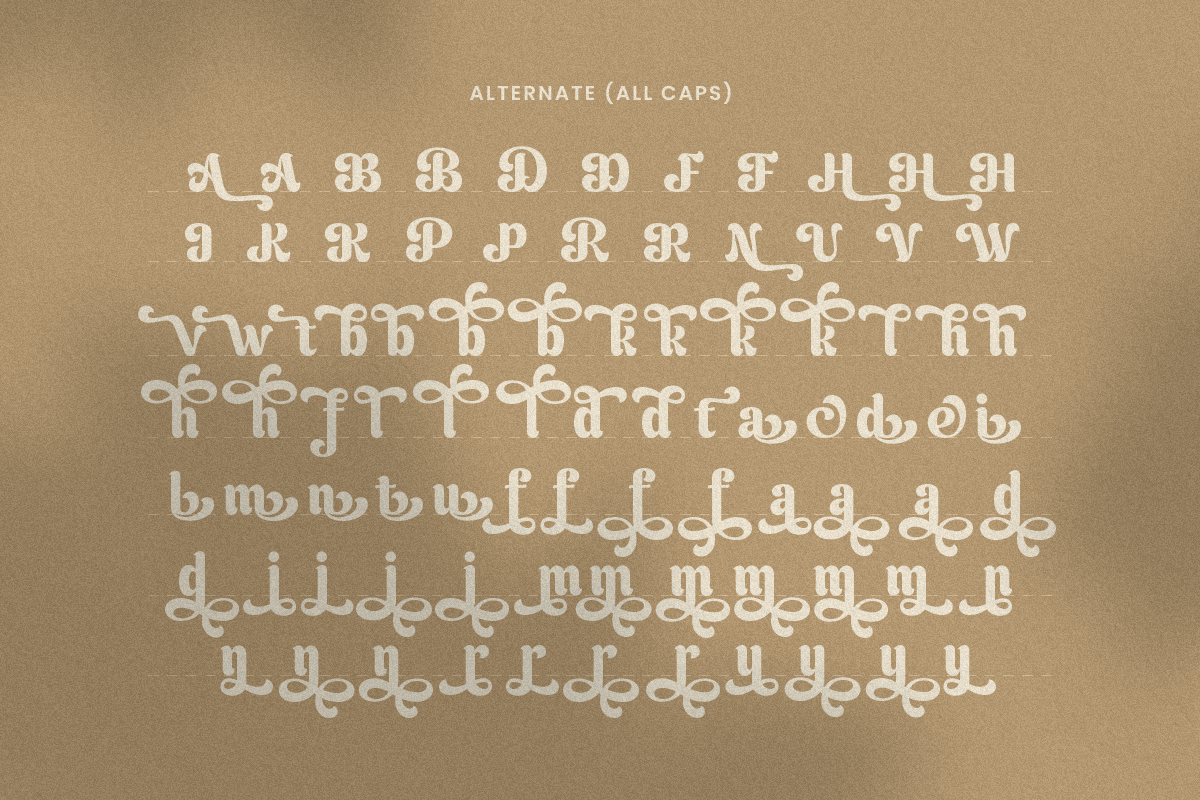 ALTERNATE (ALL CAPS)
A A B B D D F F H H H
I K K P P R R N U V W
v w t b b b b k k k k l h h
h h f l l l d d t a o d e i
b m n t u f f f f a a a d
d i i i i m m m m m m n
n n n r r r r y y y y